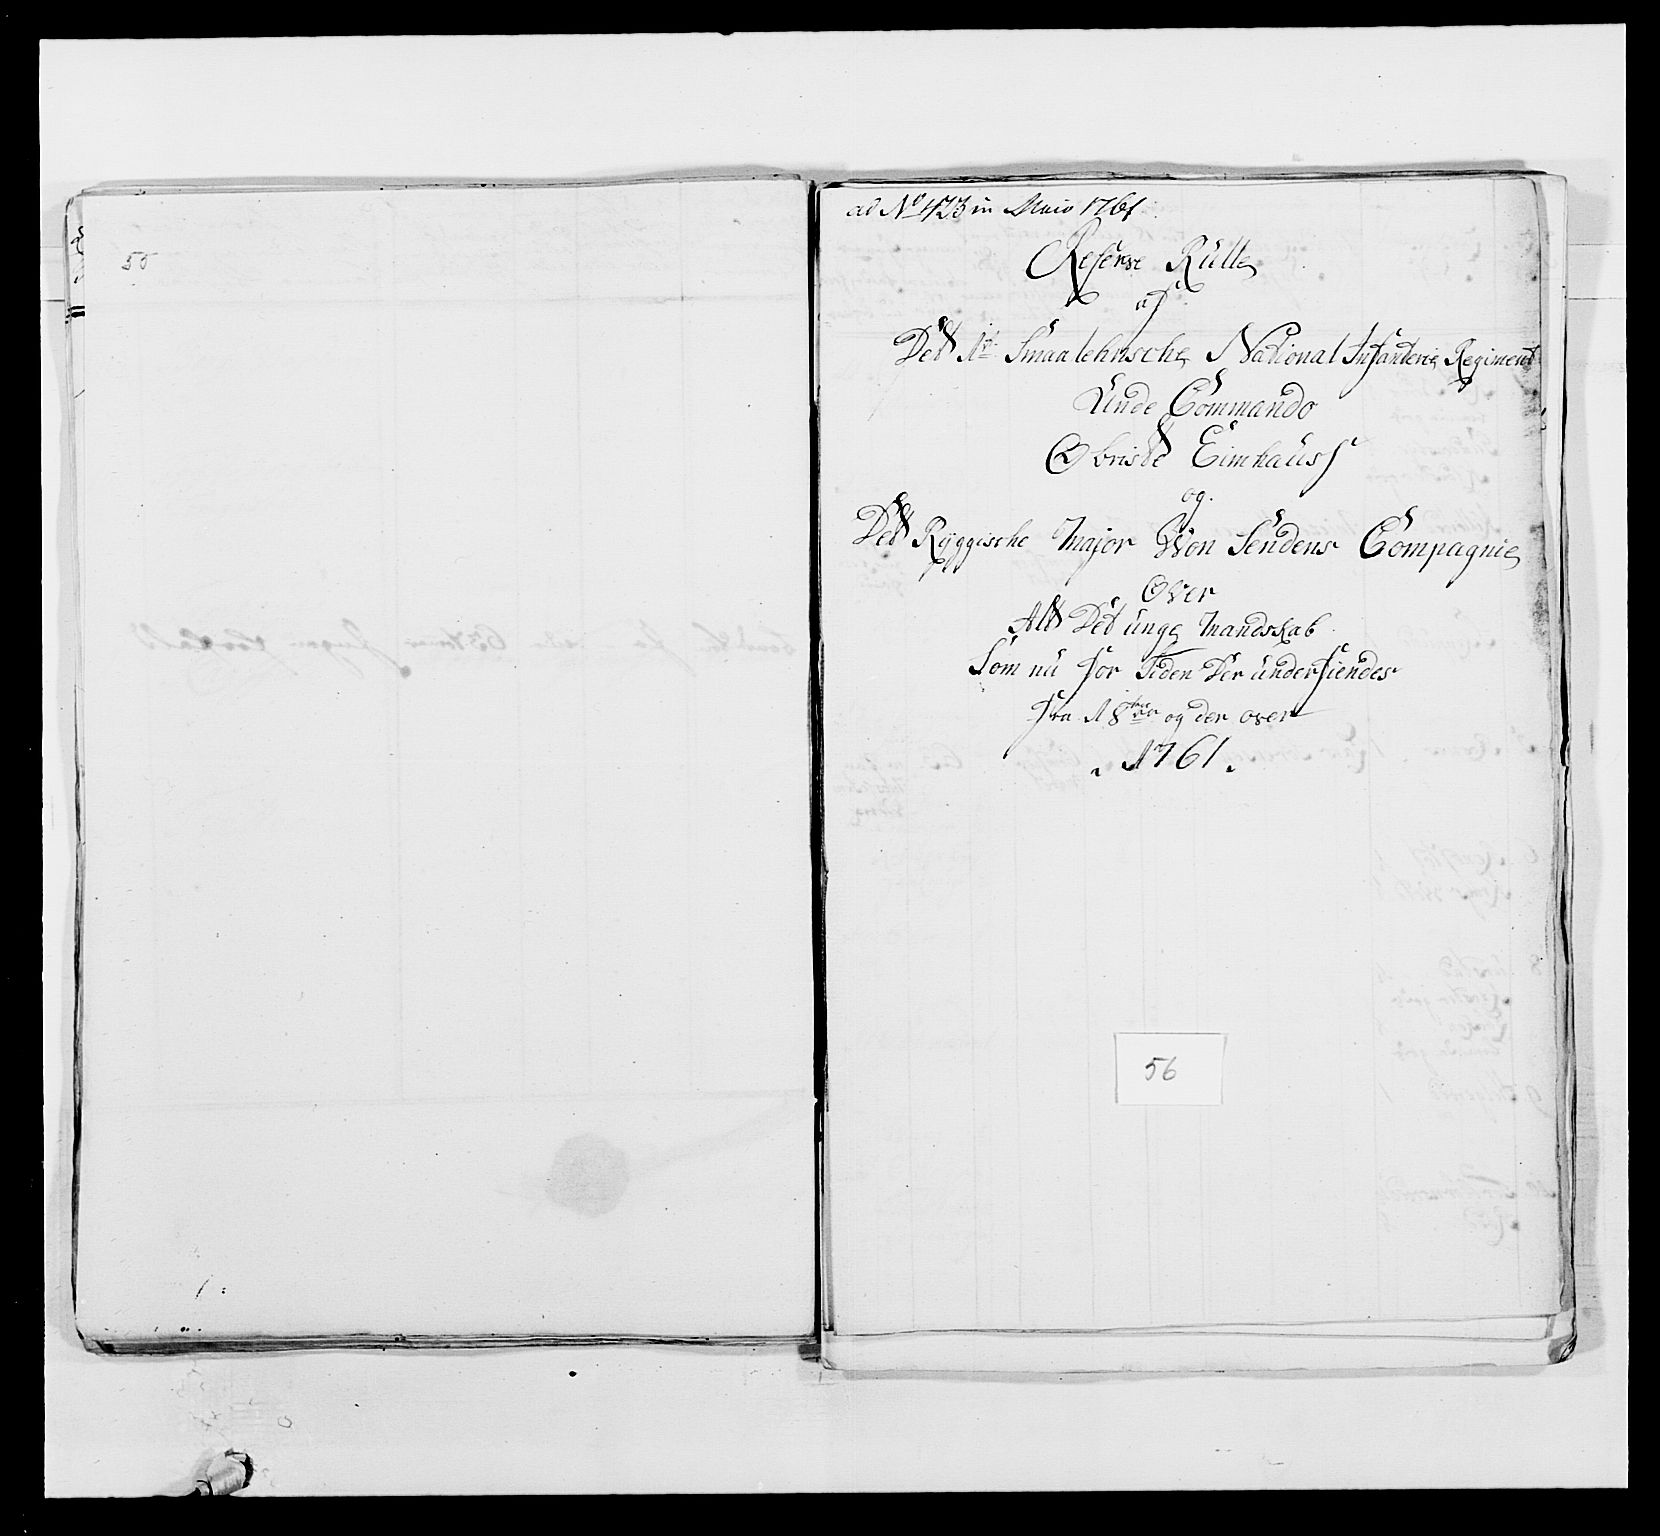 55
ad No 423 in Maio 1761
Reserve Rülle
af
Det 1te Smaalehnsche National Infanterie Regiment
Unde Commando
Obriste Eimhaüs
og
Det Ryggische Major Von Sendens Compagnie
Over
Alt Det ünge Mandskab
Som nü for Tiden Der ünder fiendes
fra 18 og der over
1761
56